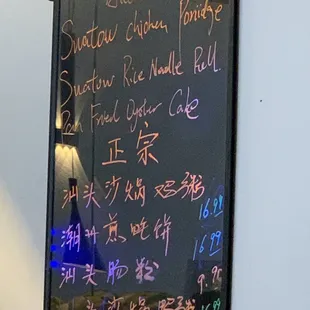 Swatow chicken Porridge
Swatow Rice Noodle Rull
Pan Fried Oyster Cake
正宗
汕头沙锅鸡粥 16.99
潮州煎蚝饼 16.99
汕头肠粉 9.95
头沙锅鸡粥